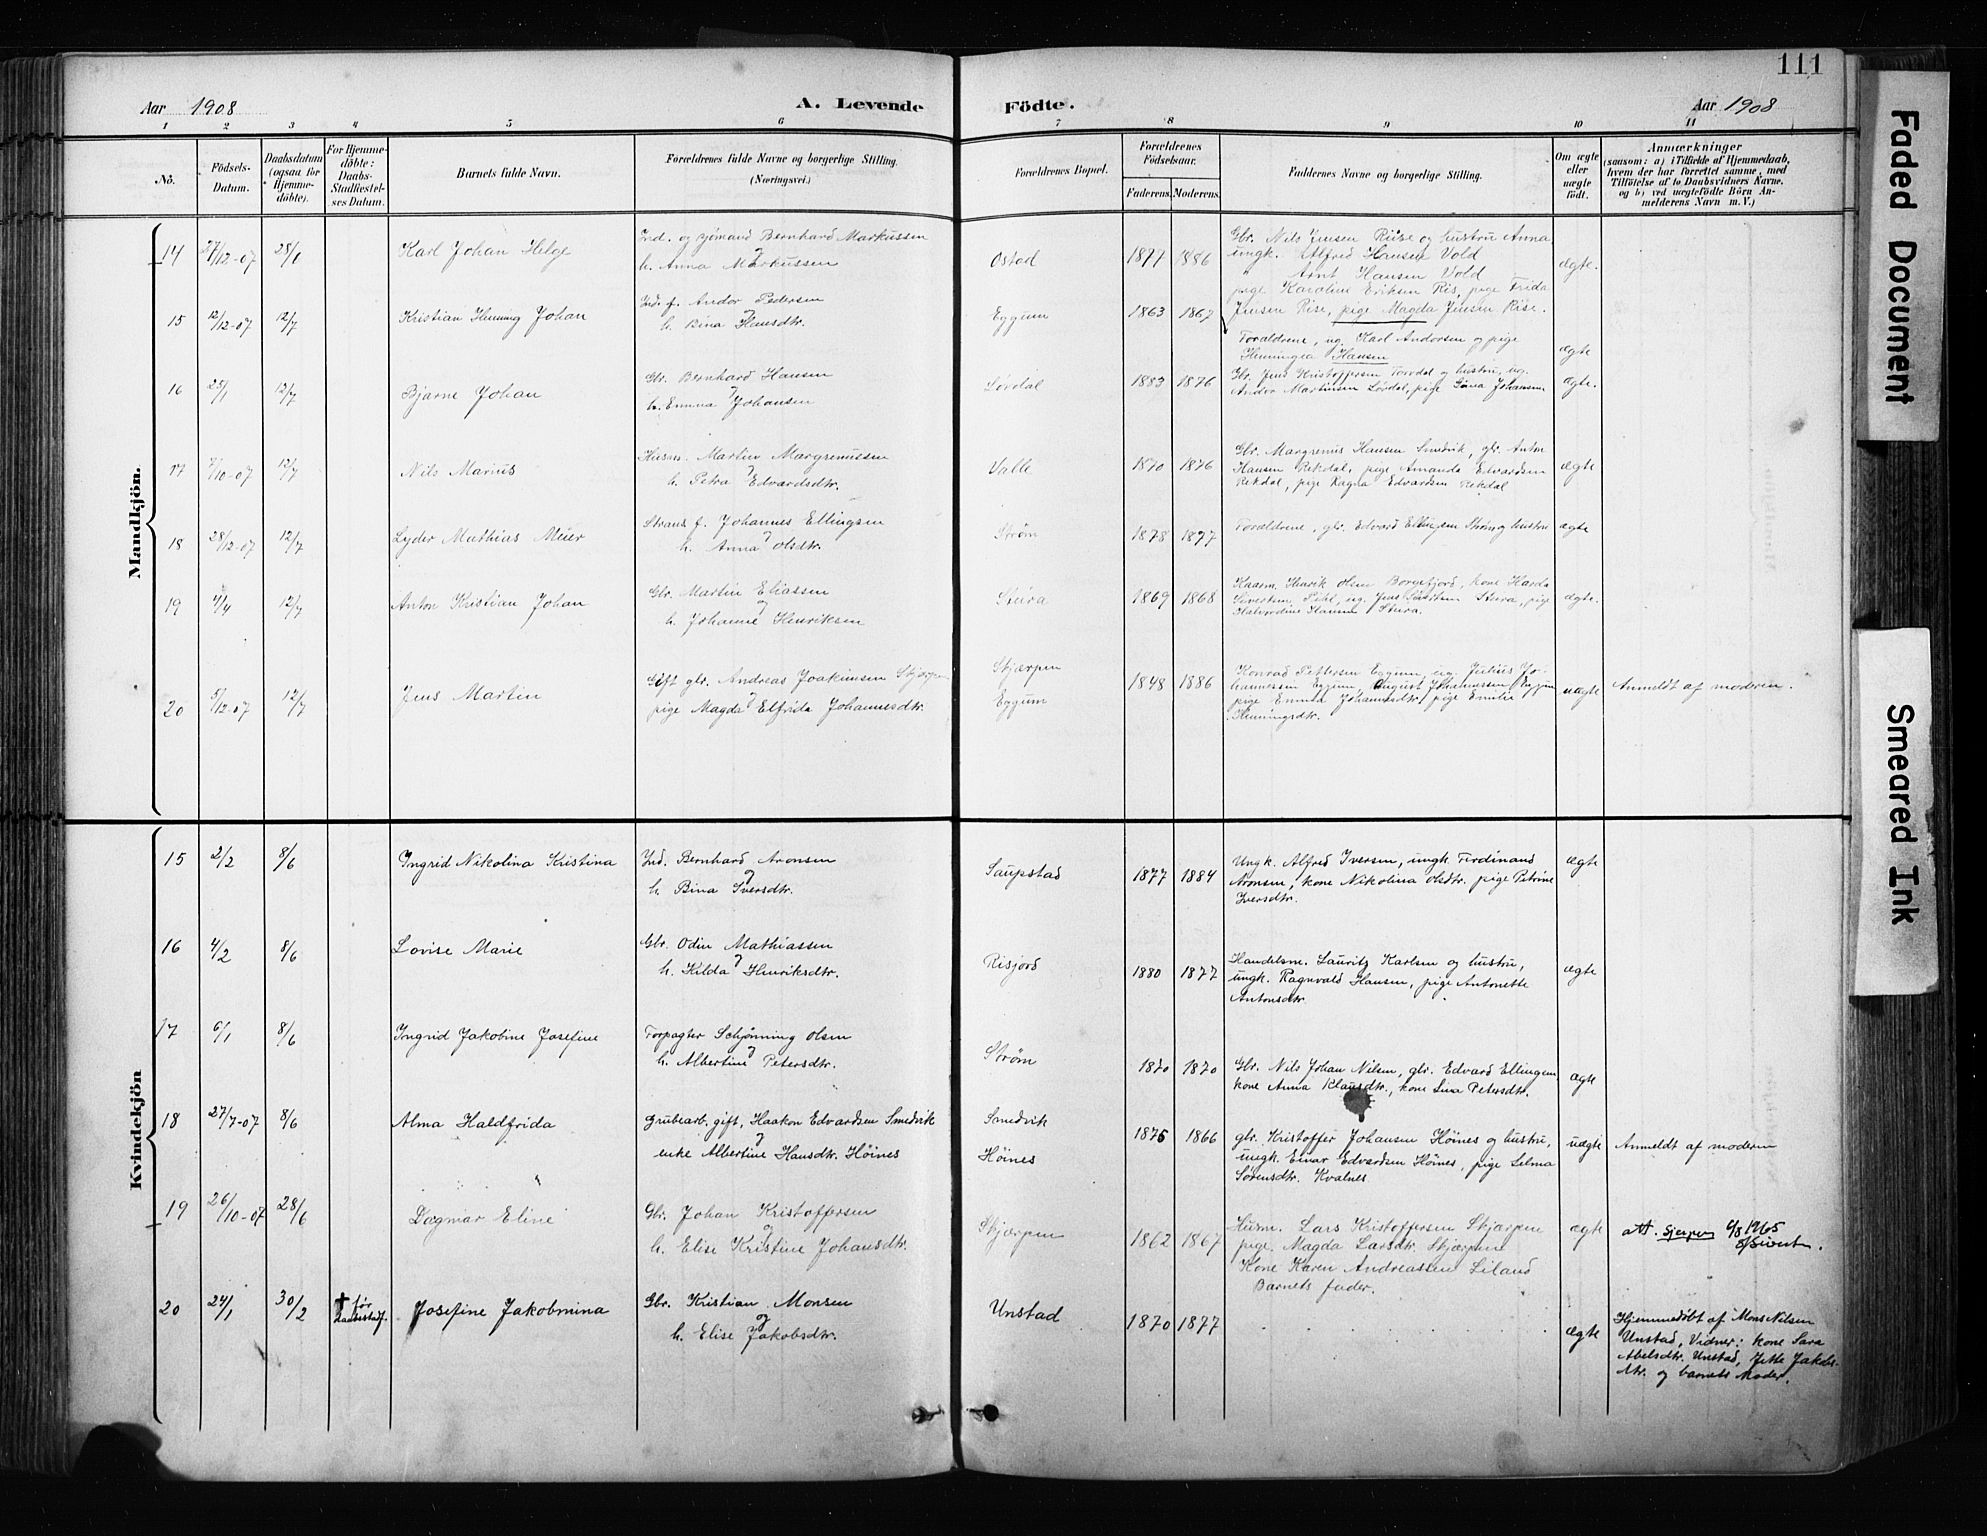 111
Aar 1908
A. Levende Födte.
Aar 1908
1 2 3 4 5 6 7 8 9 10 11
No.
Födsels-Datum.
Daabsdatum (ogsaa for Hjemme-döbte).
For Hjemme-döbte: Daabs-Stadfæstel-ses Datum.
Barnets fulde Navn.
Forældrenes fulde Navne og borgerlige Stilling.
(Næringsvei.)
Forældrenes Bopæl.
Forældrenes Födselsaar.
Faderens. Moderens.
Faddernes Navne og borgerlige Stilling.
Om ægte eller uægte født.
Anmærkninger
(saasom: a) i Tilfælde af Hjemmedaab,
hvem der har forrettet samme, med
Tilföielse af to Daabsvidners Navne,
og b) ved uægtefödte Börn An-
melderens Navn m. V.)
Mandkjön.
14 27/12-07 28/1 Karl Johan Helge
Ind. og sømand Bernhard Markussen
og
h. Anna Markussen
Ostad 1877 1886
Gbr. Nils Jensen Riise og hustru Anna
ungk. Alfred Hansen Vold
Arnt Hansen Vold
pige Karoline Eriksen Ris, pige Frida
Jensen Rise, pige Magda Jensen Rise.
ægte.
15 12/12-07 12/7 Kristian Henning Johan
Ind. f. Andor Pedersen
og
h. Bina Hansdtr.
Eggum 1863 1867
Forældrene, ug. Karl Andorsen og pige
Henningea Hansen
ægte
16 25/1 12/7 Bjarne Johan
Gbr. Bernhard Hansen
og
h. Emma Johansen
Løvdal 1883 1876
Gbr. Jens Kristoffersen Torvdal og hustru, ug.
Andor Martinsen Lövdal, pige Gina Johansen
ægte.
17 7/10-07 12/7 Nils Marius
Husm. Martin Margremussen
og
h. Petra Edvardsdtr.
Valle 1870 1876
Gbr. Margremus Hansen Smedvik, gbr. Anton
Hansen Rekdal, pige Amanda Edvardsen
Rekdal, pige Ragna Edvardsen Rekdal
ægte
18 28/12-07 12/7 Lyder Mathias Meier
Strands. f. Johannes Ellingsen
og
h. Anna Olsdtr.
Strøm 1878 1877
Forældrene, gbr. Edvard Ellingsen Strøm og hustru
ægte
19 4/4 12/7 Anton Kristian Johan
Gbr. Martin Eliassen
og
h. Johanne Henriksen
Stura 1869 1868
Kaarm. Henrik Olsen Borgefjord, kone Harda
Sivertsen Pihl, ug. Jens Stura, pige
Halvordine Hansen Stura.
ægte.
20 5/12-07 12/7 Jens Martin
Gift gbr. Andreas Joakimsen Skjærpen
og
pige Magda Elfrida Johannesdtr.
Skjærpen
Eggum
1848 1886
Konrad Pettersen Eggum, ug. Julius Jo-
hannessen Eggum, August Johannessen Eggum
pige Emma Johannesdtr, pige Emilie
Henningsdtr.
uægte
Anmeldt af moderen.
Kvindekjön
15 2/2 8/6 Ingrid Nikolina Kristina
Ind. Bernhard Aronsen
og
h. Bina Iversdtr.
Saupstad 1877 1884
Ungk. Alfred Iversen, ungk. Ferdinand
Aronsen, kone Nikolina Olsdtr. pige Petrine
Iversdtr.
ægte
16 4/2 8/6 Lovise Marie
Gbr. Odin Mathiassen
og
h. Hilda Henriksdtr.
Risjord 1880 1877
Handelsm. Lauritz Karlsen og hustru,
ungk. Ragnvald Hansen, pige Antonette
Antonsdtr.
ægte
17 6/1 8/6 Ingrid Jakobine Josefine
Forpagter Schjønning Olsen
og
h. Albertine Petersdtr.
Strøm 1870 1870
Gbr. Nils Johan Nilsen, gbr. Edvard Ellingsen,
kone Anna Klausdtr., kone Lina Petersdtr.
ægte
18 27/7-07 8/6 Alma Haldfrida
Grubearb. gift, Haakon Edvardsen Smedvik
og
enke Albertine Hansdtr. Höines
Smedvik
Höines
1875 1866
gbr. Kristoffer Johansen Höines og hustru,
ungk. Einar Edvardsen Höines, pige Selma
Sørensdtr. Kvalnes.
uægte
Anmeldt af moderen
19 26/10-07 28/6 Dagmar Eline
Gbr. Johan Kristoffersen
og
h. Elise Kristine Johansdtr.
Skjærpen 1862 1867
Husm. Lars Kristoffersen Skjærpen
pige. Magda Larsdtr. Skjærpen
Kone Karen Andreassen Liland
Barnets fader.
ægte
att. Sjerpen 6/8 1965
20 24/1 30/2 † før Daabsstadf. Josefine Jakobmina
Gbr. Kristian Monsen
og
h. Elise Jakobsdtr.
Unstad 1870 1877
ægte
Hjemmedøbt af Mons Nilsen
Unstad, Vidner: kone Sara
Abelsdtr. Unstad, Jette Jakobs-
dtr. og barnets Moder.
Faded Document
Smeared Ink